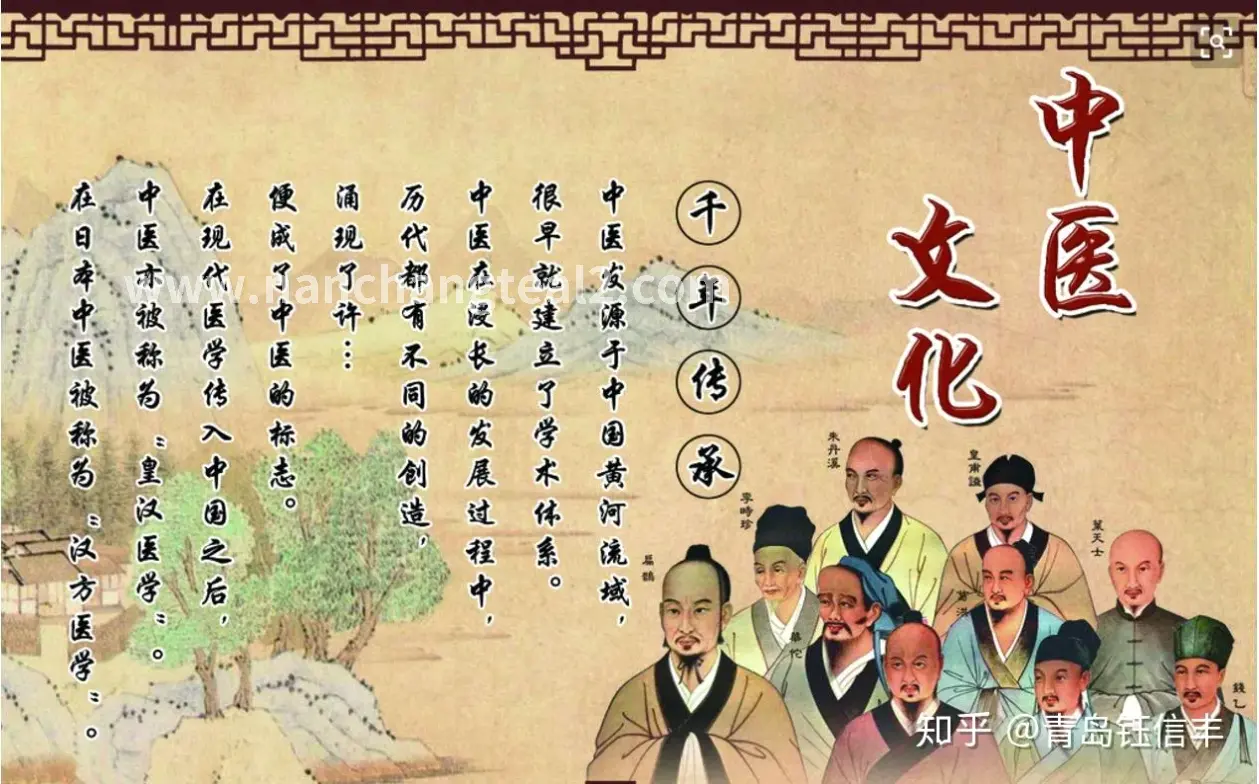 中医
文化
千年传承
中医发源于中国黄河流域，
很早就建立了学术体系。
中医在漫长的发展过程中，
历代都有不同的创造，
涌现了许…
便成了中医的标志。
在现代医学传入中国之后，
中医亦被称为“皇汉医学”。
在日本中医被称为“汉方医学”。
朱丹溪
皇甫謐
李時珍
葉天士
扁鵲
葛洪
華佗
錢乙
www.nanchangteal2.com
知乎 @青岛钰信丰